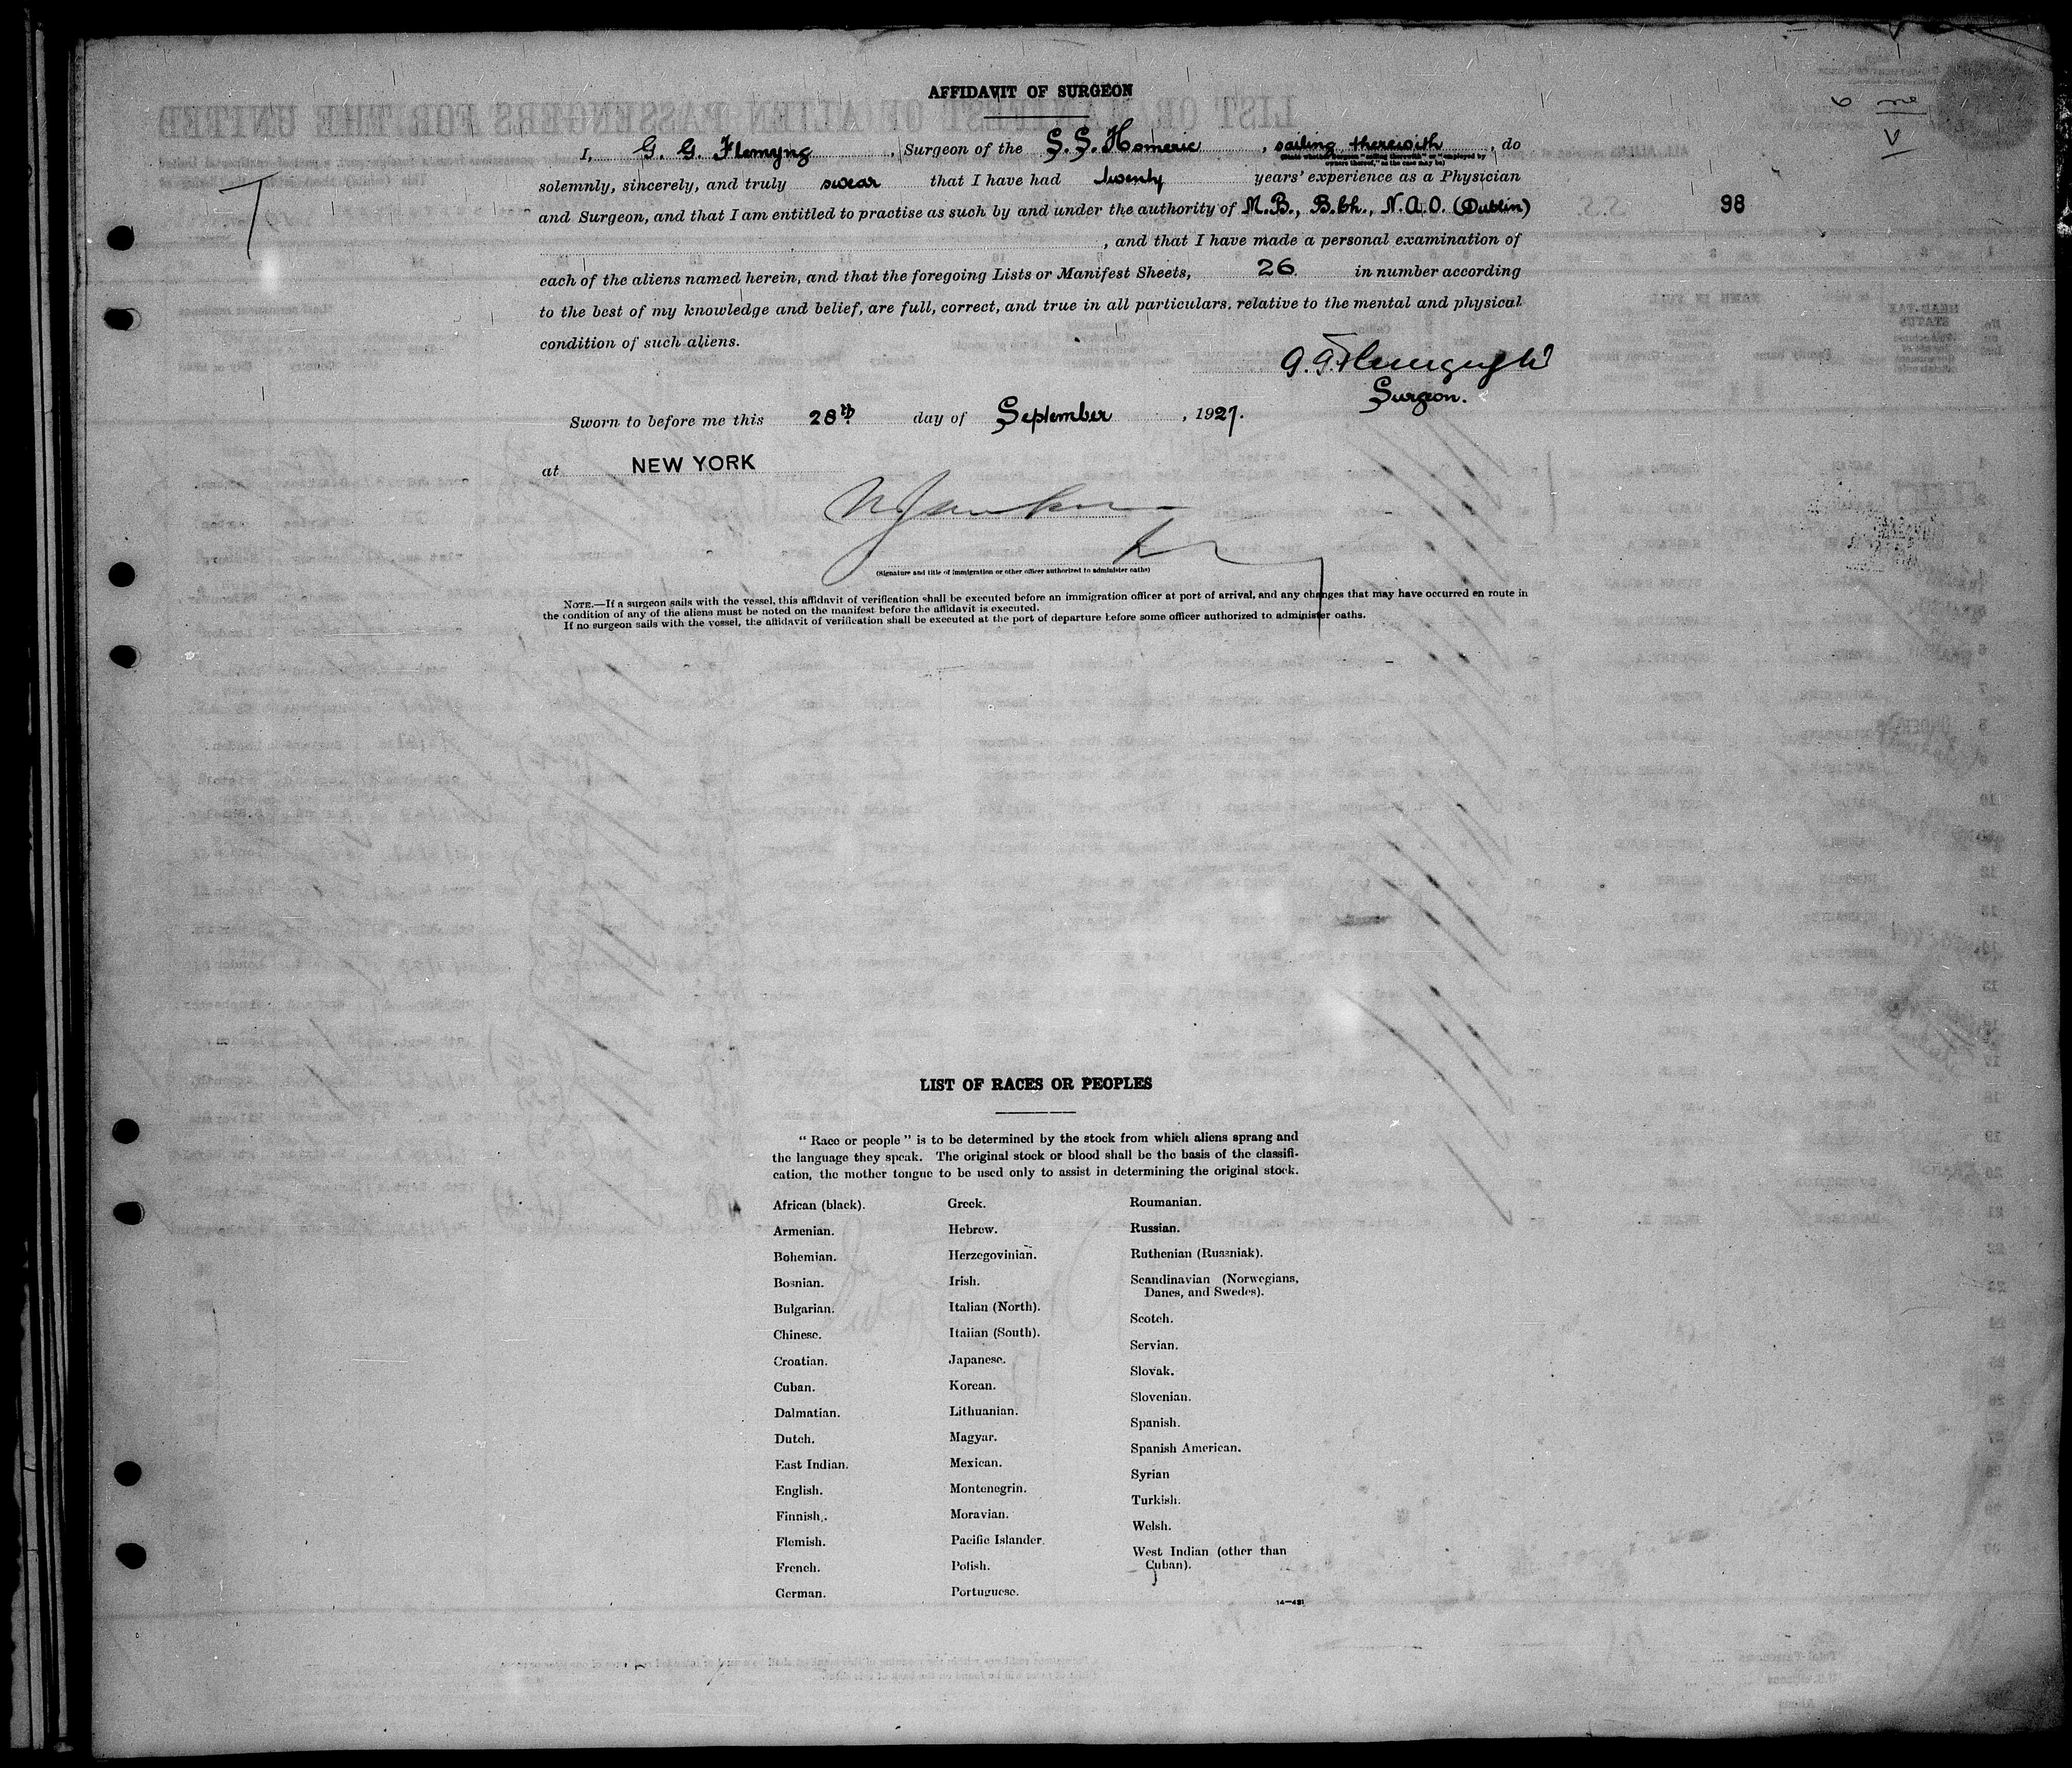 AFFIDAVIT OF SURGEON
I, G. G. Flemyng, Surgeon of the S.S. Homeric, sailing therewith, do
(State whether surgeon "sailing therewith" or "employed by
owners thereof," as the case may be)
solemnly, sincerely, and truly swear that I have had twenty years' experience as a Physician
and Surgeon, and that I am entitled to practise as such by and under the authority of M.B., B.Ch., N.A.O. (Dublin)
98
, and that I have made a personal examination of
each of the aliens named herein, and that the foregoing Lists or Manifest Sheets, 26 in number according
to the best of my knowledge and belief, are full, correct, and true in all particulars. relative to the mental and physical
condition of such aliens.
Surgeon.
Sworn to before me this 28th day of September, 1927.
at NEW YORK
(Signature and title of immigration or other officer authorized to administer oaths)
NOTE.—If a surgeon sails with the vessel, this affidavit of verification shall be executed before an immigration officer at port of arrival, and any changes that may have occurred en route in
the condition of any of the aliens must be noted on the manifest before the affidavit is executed.
If no surgeon sails with the vessel, the affidavit of verification shall be executed at the port of departure before some officer authorized to administer oaths.
LIST OF RACES OR PEOPLES
"Race or people" is to be determined by the stock from which aliens sprang and
the language they speak. The original stock or blood shall be the basis of the classifi-
cation, the mother tongue to be used only to assist in determining the original stock.
African (black).
Armenian.
Bohemian.
Bosnian.
Bulgarian.
Chinese.
Croatian.
Cuban.
Dalmatian.
Dutch.
East Indian.
English.
Finnish.
Flemish.
French.
German.
Greek.
Hebrew.
Herzegovinian.
Irish.
Italian (North).
Italian (South).
Japanese.
Korean.
Lithuanian.
Magyar.
Mexican.
Montenegrin.
Moravian.
Pacific Islander.
Polish.
Portuguese.
Roumanian.
Russian.
Ruthenian (Russniak).
Scandinavian (Norwegians,
Danes, and Swedes).
Scotch.
Servian.
Slovak.
Slovenian.
Spanish.
Spanish American.
Syrian
Turkish.
Welsh.
West Indian (other than
Cuban).
14—431